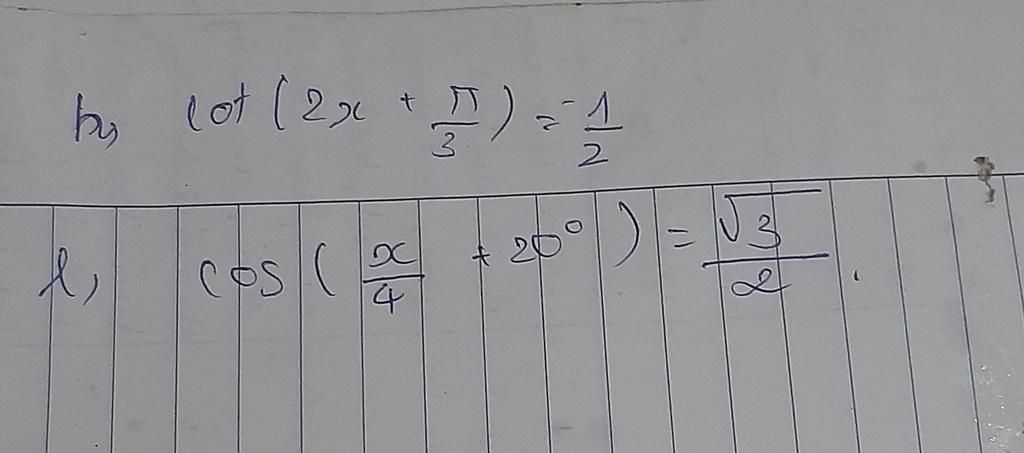 h, cot(2x + π/3) = -1/2
l, cos(x/4 + 20°) = √3/2.